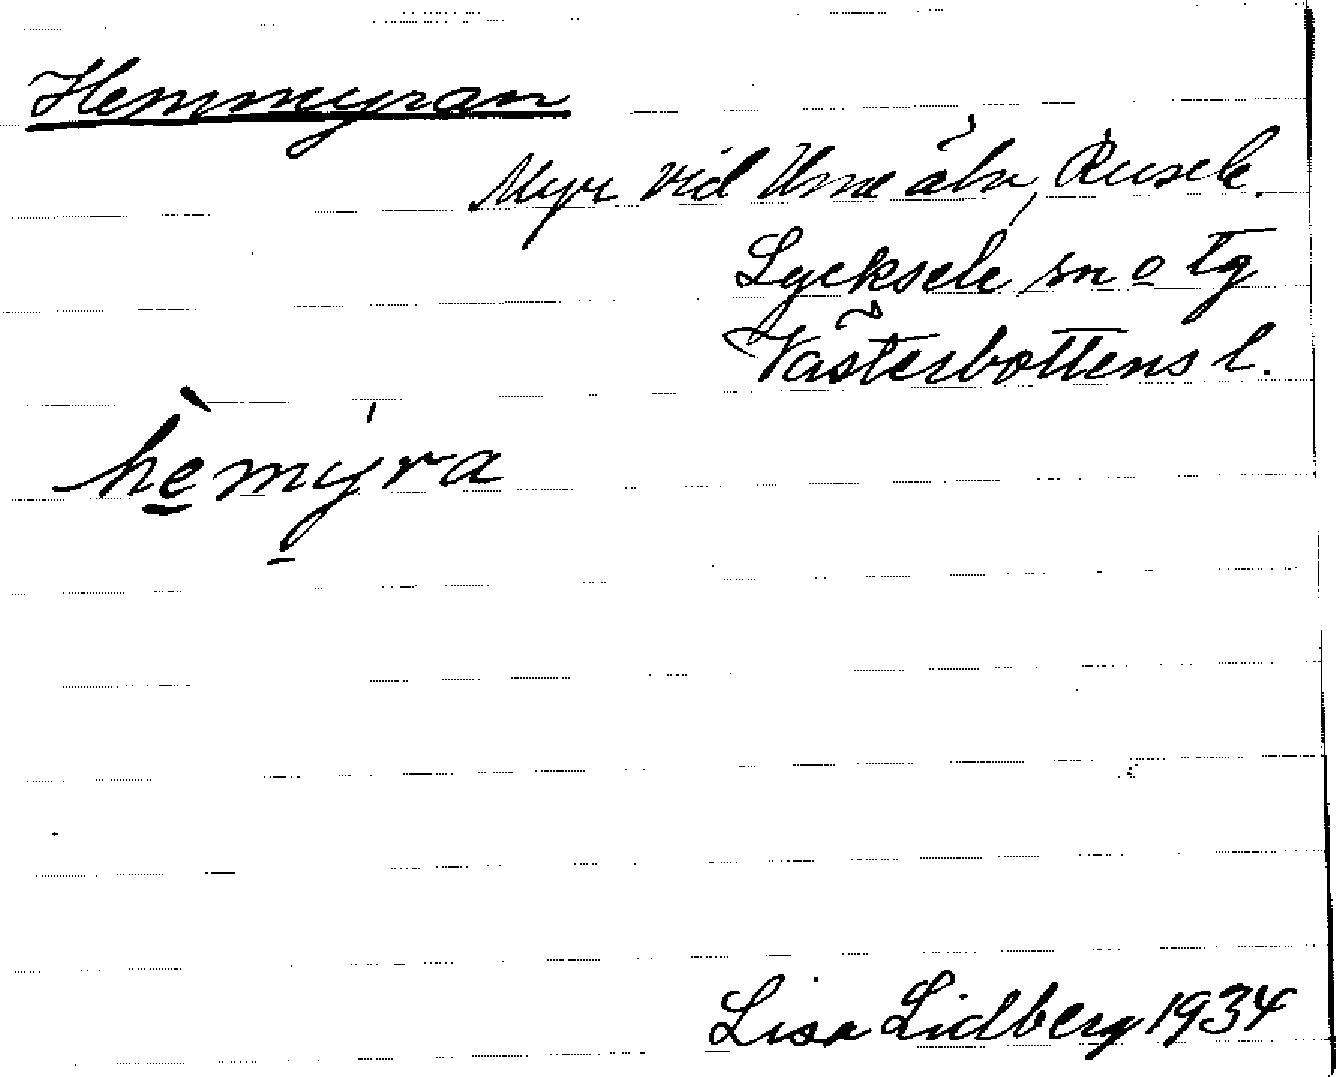 Hemmyran
Myr vid Ume älv, Rusele.
Lycksele sn o tg
Västerbottens l.
hèmýra
Lisa Lidberg 1934